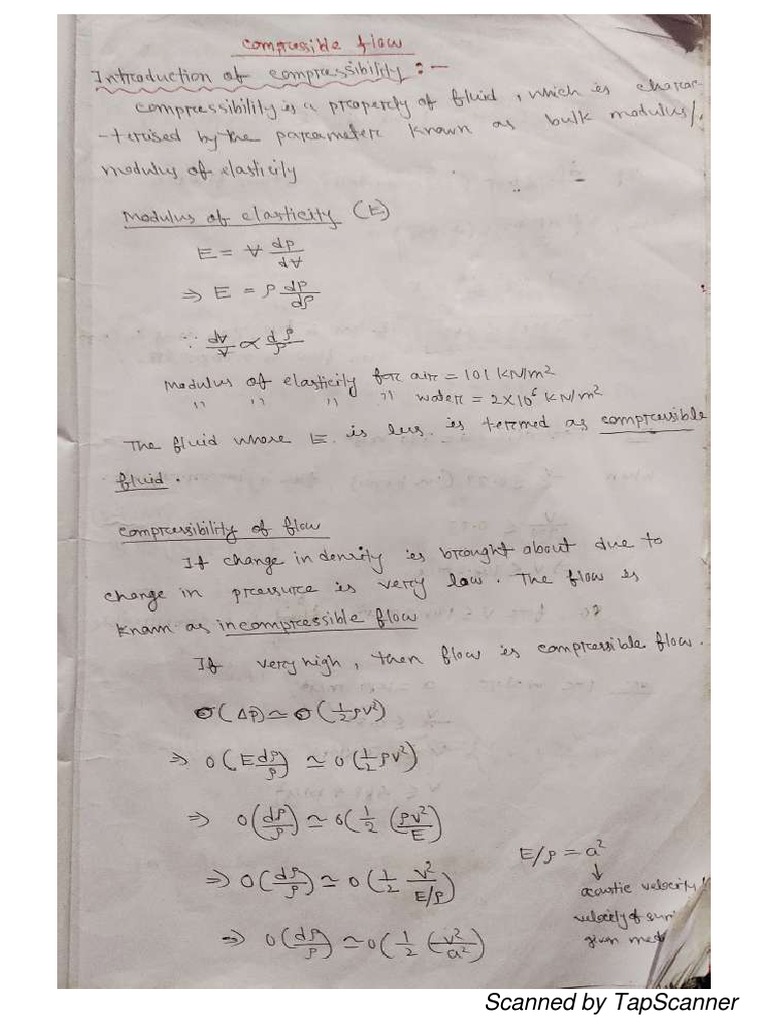 Compressible flow
Introduction of compressibility :-
compressibility is a property of fluid, which is charac-
-terised by the parameter known as bulk modulus/
modulus of elasticity
Modulus of elasticity (E)
E = V dp/dV
⇒ E = ρ dp/dρ
∵ dV/V ∝ dρ/ρ
Modulus of elasticity for air = 101 KN/m²
" " " " water = 2×10⁶ KN/m²
The fluid where E is less is termed as compressible
fluid.
compressibility of flow
If change in density is brought about due to
change in pressure is very low. The flow is
known as incompressible flow
If very high, then flow is compressible flow.
O(Δp) ≃ O(½ρV²)
⇒ O(E dρ/ρ) ≃ O(½ρV²)
⇒ O(dρ/ρ) ≃ O(½ (ρV²/E)
⇒ O(dρ/ρ) ≃ O(½ V²/E/ρ)
⇒ O(dρ/ρ) ≃ O(½ (V²/a²)
E/ρ = a²
↓
acoustic velocity/
velocity of
given
Scanned by TapScanner